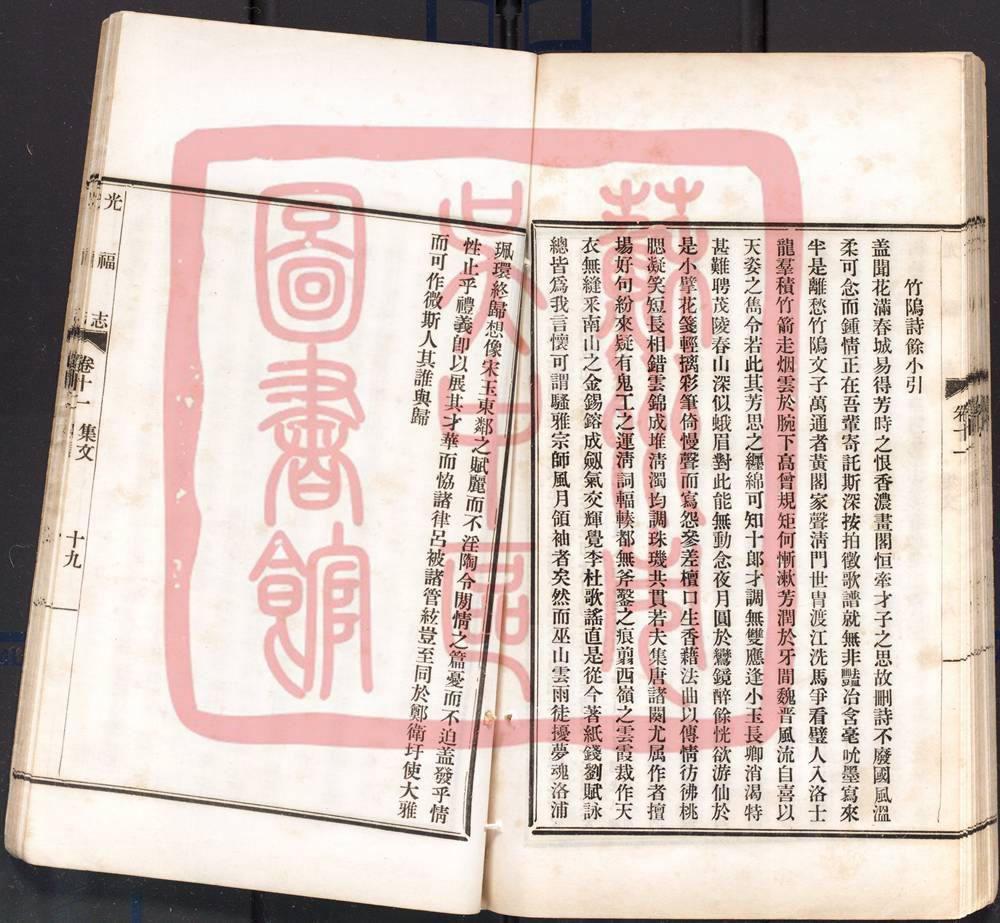 竹隖詩餘小引
蓋聞花滿春城易得芳時之恨香濃畫閣恒牽才子之思故刪詩不廢國風溫
柔可念而鍾情正在吾輩寄託斯深按拍徵歌譜就無非豔冶含毫吮墨寫來
半是離愁竹隖文子萬通者黃閣家聲淸門世胄渡江洗馬爭看璧人入洛士
龍羣積竹箭走烟雲於腕下高曾規矩何慚漱芳潤於牙間魏晉風流自喜以
天姿之雋令若此其芳思之纏綿可知十郎才調無雙應逢小玉長卿消渴特
甚難聘茂陵春山深似蛾眉對此能無動念夜月圓於鸞鏡醉餘恍欲游仙於
是小擘花箋輕摛彩筆倚慢聲而寫怨參差檀口生香藉法曲以傳情彷彿桃
腮凝笑短長相錯雲錦成堆淸濁均調珠璣共貫若夫集唐諸闋尤属作者擅
場好句紛來疑有鬼工之運淸詞輻輳都無斧鑿之痕翦西嶺之雲霞裁作天
衣無縫釆南山之金錫鎔成劔氣交輝覺李杜歌謠直是從今著紙錢劉賦詠
總皆爲我言懷可謂騷雅宗師風月領袖者矣然而巫山雲雨徒擾夢魂洛浦
珮環終歸想像宋玉東鄰之賦麗而不淫陶令閒情之篇憂而不迫蓋發乎情
性止乎禮義卽以展其才華而恊諸律呂被諸管絃豈至同於鄭衛圩使大雅
而可作微斯人其誰與歸
光福志
卷十一 集文
十九
蘇州市
吳中區
圖書館